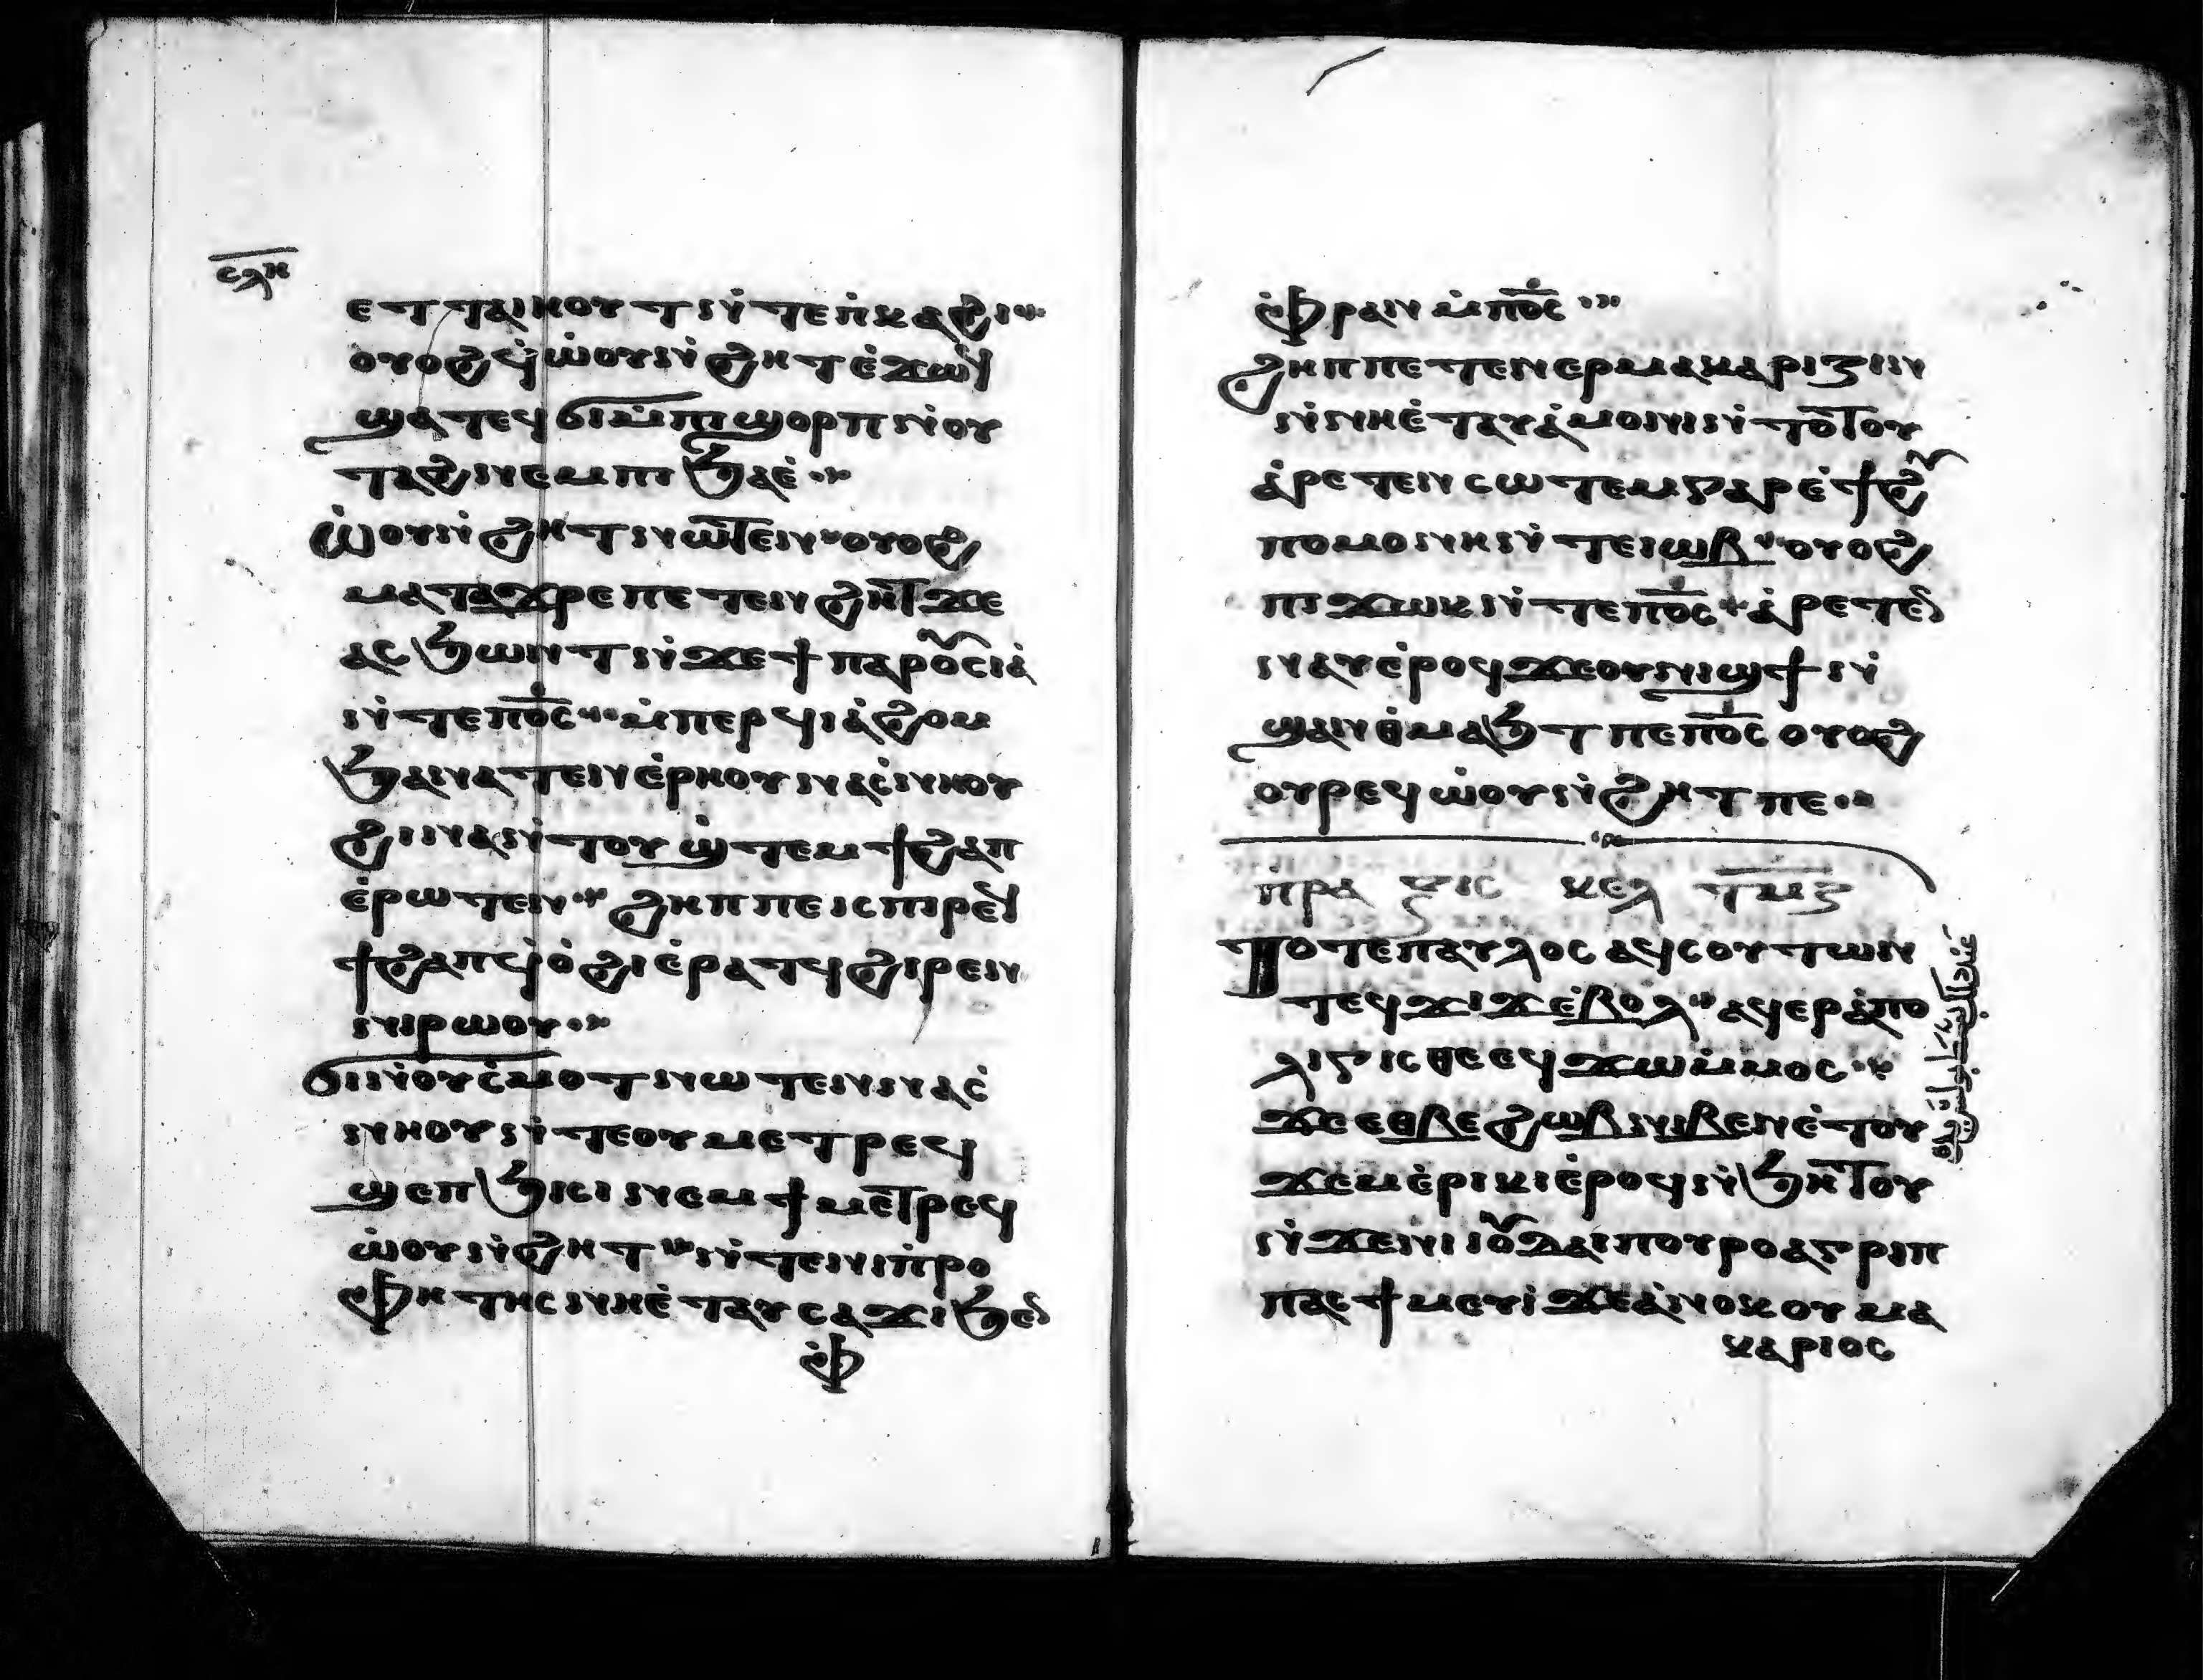 ⲥⲗⲏ
ⲉⲧⲧⲁⲓⲏⲟⲩⲧ ⲛ̀ⲧⲉ ⲡ̀ⲕⲁϩⲓ
ⲟⲩⲟϩ ϥ̀ⲱⲟⲩ ⲛ̀ϩⲏⲧ ⲉ̀ϫⲱϥ
ϣⲁⲧⲉϥϭⲓ ⲙ̀ⲡⲓϣⲟⲣⲡ ⲛ̀ⲟⲩ
ⲧⲁϩ ⲛⲉⲙ ⲡⲓϧⲁⲉ̀
ⲱ̀ⲟⲩ ⲛ̀ϩⲏⲧ ⲛⲱⲧⲉⲛ ⲟⲩⲟϩ
ⲙⲁⲧⲁϫⲣⲉ ⲡⲉⲧⲉⲛϩⲏⲧ ϫⲉ
ⲁⲥϧⲱⲛⲧ ⲛ̀ϫⲉ ϯⲡⲁⲣⲟⲥⲓⲁ̀
ⲛ̀ⲧⲉ ⲡⲟ̅ⲥ̅ ⲙ̀ⲡⲉⲣϥⲓⲁ̀ϩⲟⲙ
ϧⲁ ⲛⲁⲧⲉⲛⲉ̀ⲣⲏⲟⲩ ⲛⲁⲥ̀ⲛⲏⲟⲩ
ϩⲓⲛⲁ ⲛ̀ⲧⲟⲩϣ̀ⲧⲉⲙϯϩⲁⲡ
ⲉ̀ⲣⲱⲧⲉⲛ ϩⲏⲡⲡⲉ ⲓⲥ ⲡⲓⲣⲉϥ
ϯϩⲁⲡ ϥ̀ⲟ̀ϩⲓ ⲉ̀ⲣⲁⲧϥ ϩⲓⲣⲉⲛ
ⲛⲓⲣⲱⲟⲩ
ϭⲓ ⲛ̀ⲟⲩⲥ̀ⲙⲟⲧ ⲛⲱⲧⲉⲛ ⲛⲁⲥ̀
ⲛⲏⲟⲩ ⲛ̀ⲧⲉ ⲟⲩⲙⲉⲧⲣⲉϥ
ϣⲉⲡϧⲓⲥⲓ ⲛⲉⲙ ϯⲙⲉⲧⲣⲉϥ
ⲱ̀ⲟⲩ ⲛ̀ϩⲏⲧ ⲛ̀ⲧⲉ ⲛⲓⲡ̀ⲣⲟ
ⲫⲏⲧⲏⲥ ⲛⲏⲉ̀ⲧⲁⲩⲥⲁϫⲓ ϧⲉⲛ
ⲫ̀
ⲫ̀ⲣⲁⲛ ⲙ̀ⲡⲟ̅ⲥ̅
ϩⲏⲡⲡⲉ ⲧⲉⲛⲉⲣⲙⲁⲕⲁⲣⲓⲍⲓⲛ
ⲛ̀ⲛⲏⲉ̀ⲧⲁⲩⲁ̀ⲙⲟⲛⲓ ⲛ̀ⲧⲟⲧⲟⲩ
ⲁ̀ⲣⲉⲧⲉⲛⲥⲱⲧⲉⲙ ⲅⲁⲣ ⲉ̀ϯϩⲩ
ⲡⲟⲙⲟⲛⲏ ⲛ̀ⲧⲉ ⲓⲱⲃ ⲟⲩⲟϩ
ⲡⲓϫⲱⲕ ⲛ̀ⲧⲉ ⲡⲟ̅ⲥ̅ ⲁ̀ⲣⲉⲧⲉⲛ
ⲛⲁⲩ ⲉ̀ⲣⲟϥ ϫⲉ ⲟⲩⲛⲓϣϯ ⲛ̀
ϣⲁⲛⲑ̀ⲙⲁϧⲧ ⲡⲉ ⲡⲟ̅ⲥ̅ ⲟⲩⲟϩ
ⲟⲩⲣⲉϥⲱ̀ⲟⲩ ⲛ̀ϩⲏⲧ ⲡⲉ
ⲡ̀ⲣⲁⲝⲓⲥ ⲕⲉⲗ ⲧⲙⲍ
ⲧⲟⲧⲉ ⲡⲁⲩⲗⲟⲥ ⲁϥⲥⲟⲩⲧⲱⲛ
ⲧⲉϥϫⲓϫ ⲉ̀ⲃⲟⲗ ⲁϥⲉⲣⲁ̀ⲡⲟ
ⲗⲓⲅⲓⲥⲑⲉ ⲉϥϫⲱ ⲙ̀ⲙⲟⲥ
ϫⲉ ⲉⲑⲃⲉ ϩⲱⲃ ⲛⲓⲃⲉⲛ ⲉ̀ⲧⲟⲩ
ϫⲉⲙⲉ̀ⲣⲓⲕⲓ ⲉ̀ⲣⲟϥ ⲛ̀ϧⲏⲧⲟⲩ
ⲛ̀ϫⲉ ⲛⲓⲓⲟⲩⲇⲁⲓ ⲡⲟⲩⲣⲟ ⲁⲅⲣⲓⲡ
ⲡⲁ ⲉϯⲙⲉⲩⲓ̀ ϫⲉ ⲁ̀ⲛⲟⲕ ⲟⲩⲙⲁ
ⲕⲁⲣⲓⲟⲥ